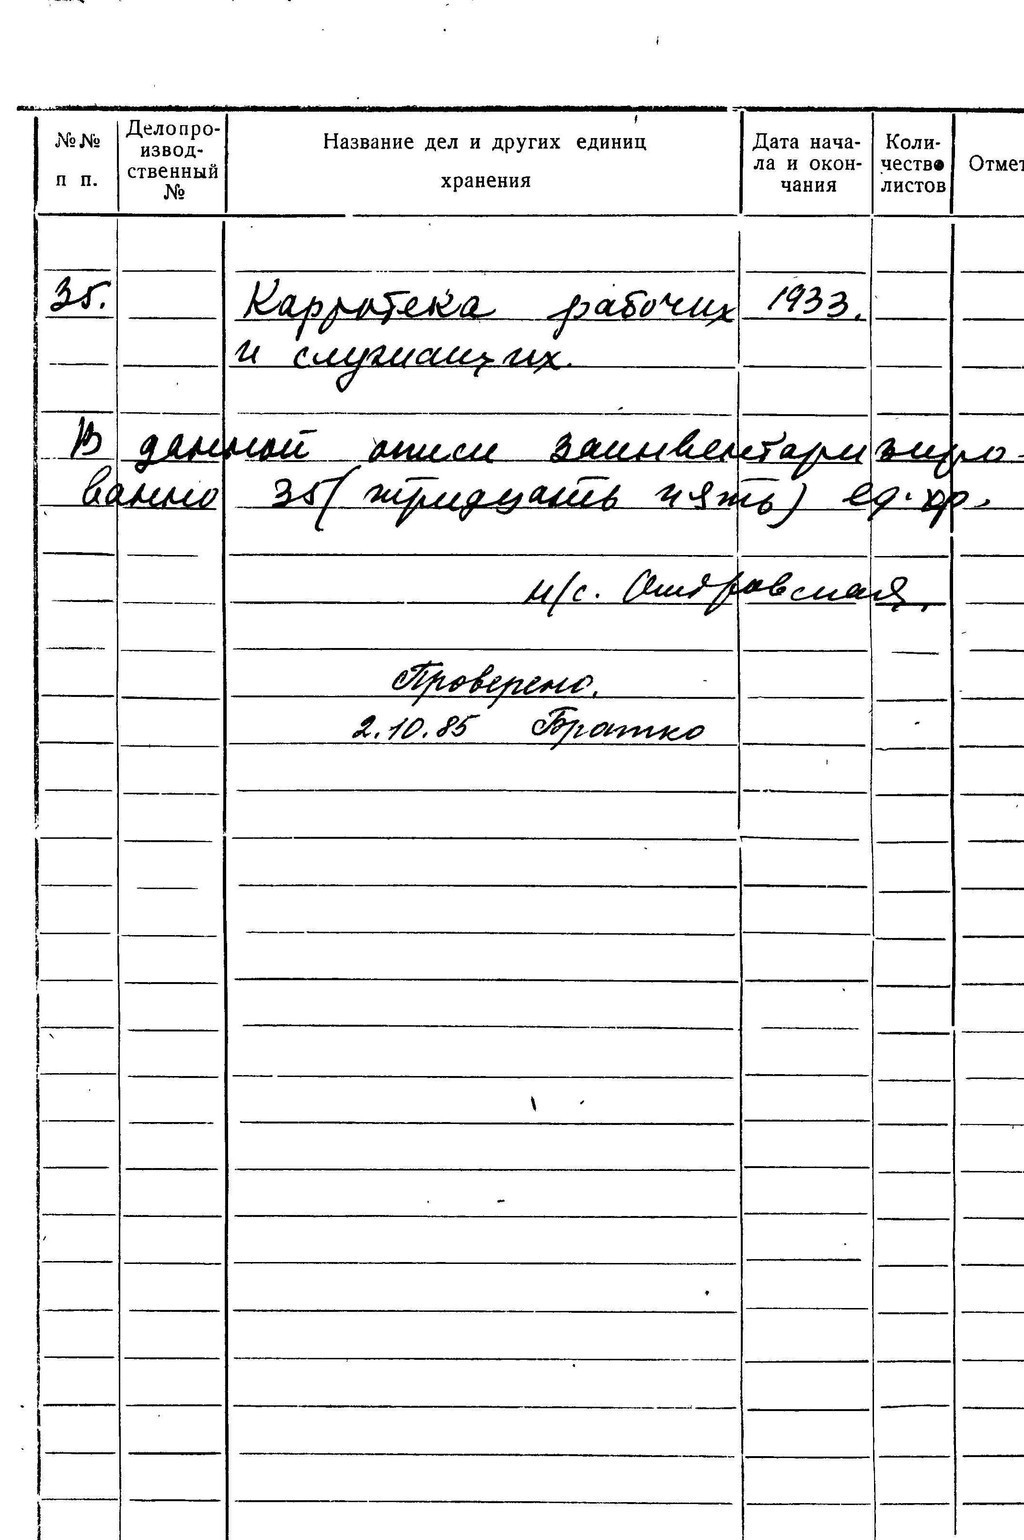 №№ п п.
Делопро-
извод-
ственный
№
Название дел и других единиц
хранения
Дата нача-
ла и окон-
чания
Коли-
чество
листов
Отмет
35.
Картотека рабочих
1933.
и служащих.
В данной описи заинвентаризиро-
ванно 35 (тридцать пять) ед. хр.
н/с.
Проверено.
2.10.85 Братко